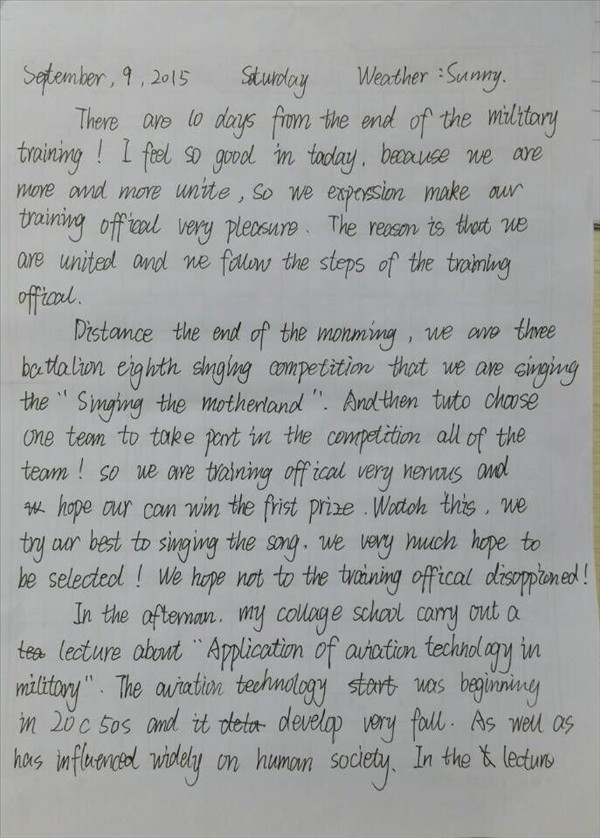 September, 9, 2015 Saturday Weather : Sunny.
There are 10 days from the end of the military
training ! I feel so good in today, because we are
more and more unite, so we experssion make our
training offical very pleasure. The reason is that we
are united and we follow the steps of the training
offical.
Distance the end of the monming, we are three
battalion eighth singing competition that we are singing
the " Singing the motherland ". And then tuto choose
one team to take part in the competition all of the
team ! so we are training offical very nervous and
hope our can win the frist prize. Watch this, we
try our best to singing the song. we very much hope to
be selected ! We hope not to the training offical disappioned !
In the afternoon. my collage school carry out a
tea lecture about " Application of aviation technology in
military ". The aviation technology start was beginning
in 20 c 50s and it deta develop very fall. As well as
has influenced widely on human society. In the t lecture